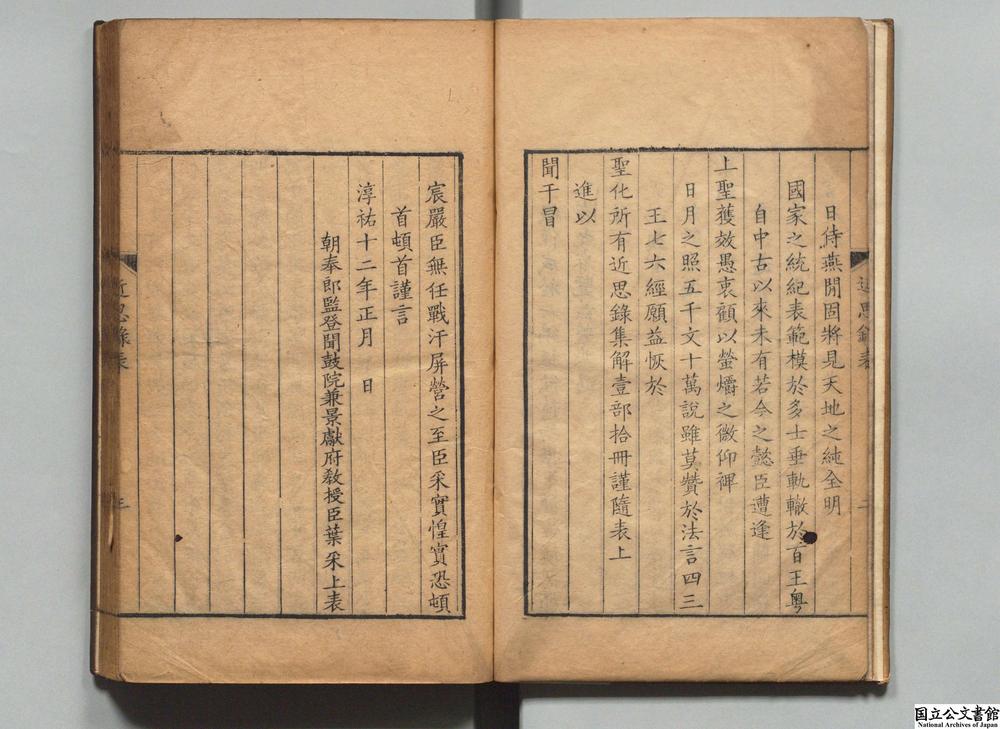 近思錄表
二
日侍燕閒固將見天地之純全明
國家之統紀表範模於多士垂軌轍於百王粤
自中古以來未有若今之懿臣遭逢
上聖獲效愚衷顧以螢爝之微仰裨
日月之照五千文十萬說雖莫贊於法言四三
王七六經願益恢於
聖化所有近思錄集解壹部拾冊謹隨表上
進以
聞干冒
宸嚴臣無任戰汗屏營之至臣采實惶實恐頓
首頓首謹言
淳祐十二年正月　日
朝奉郎監登聞鼓院兼景獻府敎授臣葉采上表
近思錄表
三
国立公文書館
National Archives of Japan